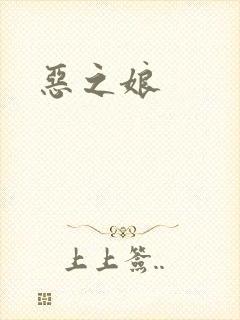 惡之娘
上上簽..